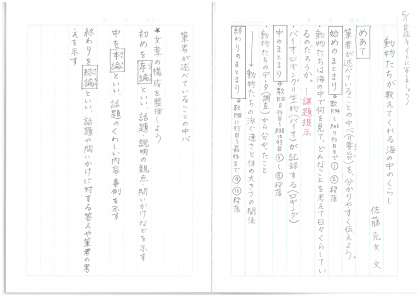 動物たちが教えてくれる海の中のくらし
佐藤克文 文
めあて
筆者が述べていることの中心(要旨)を、分かりやすく伝えよう。
始めのまとまり
①②段落
・動物たちは海の中で何を見て、どんなことを考えて日々くらしてい
るのだろうか。
課題提示
・バイオロギング=生物(バイオ)が記録する(ロギング)
中のまとまり
段落
・動物たちのデータ(調査)から分かったこと
→動物たちの泳ぐ速さと体の大きさの関係
終わりのまとまり
段落
筆者が述べていることの中心
★文章の構成を整理しよう
初めを序論といい、話題、説明の観点、問いかけなどを示す
中を本論といい、話題のくわしい内容、事例を示す
終わりを結論といい、話題や問いかけに対する答えや筆者の考
えを示す